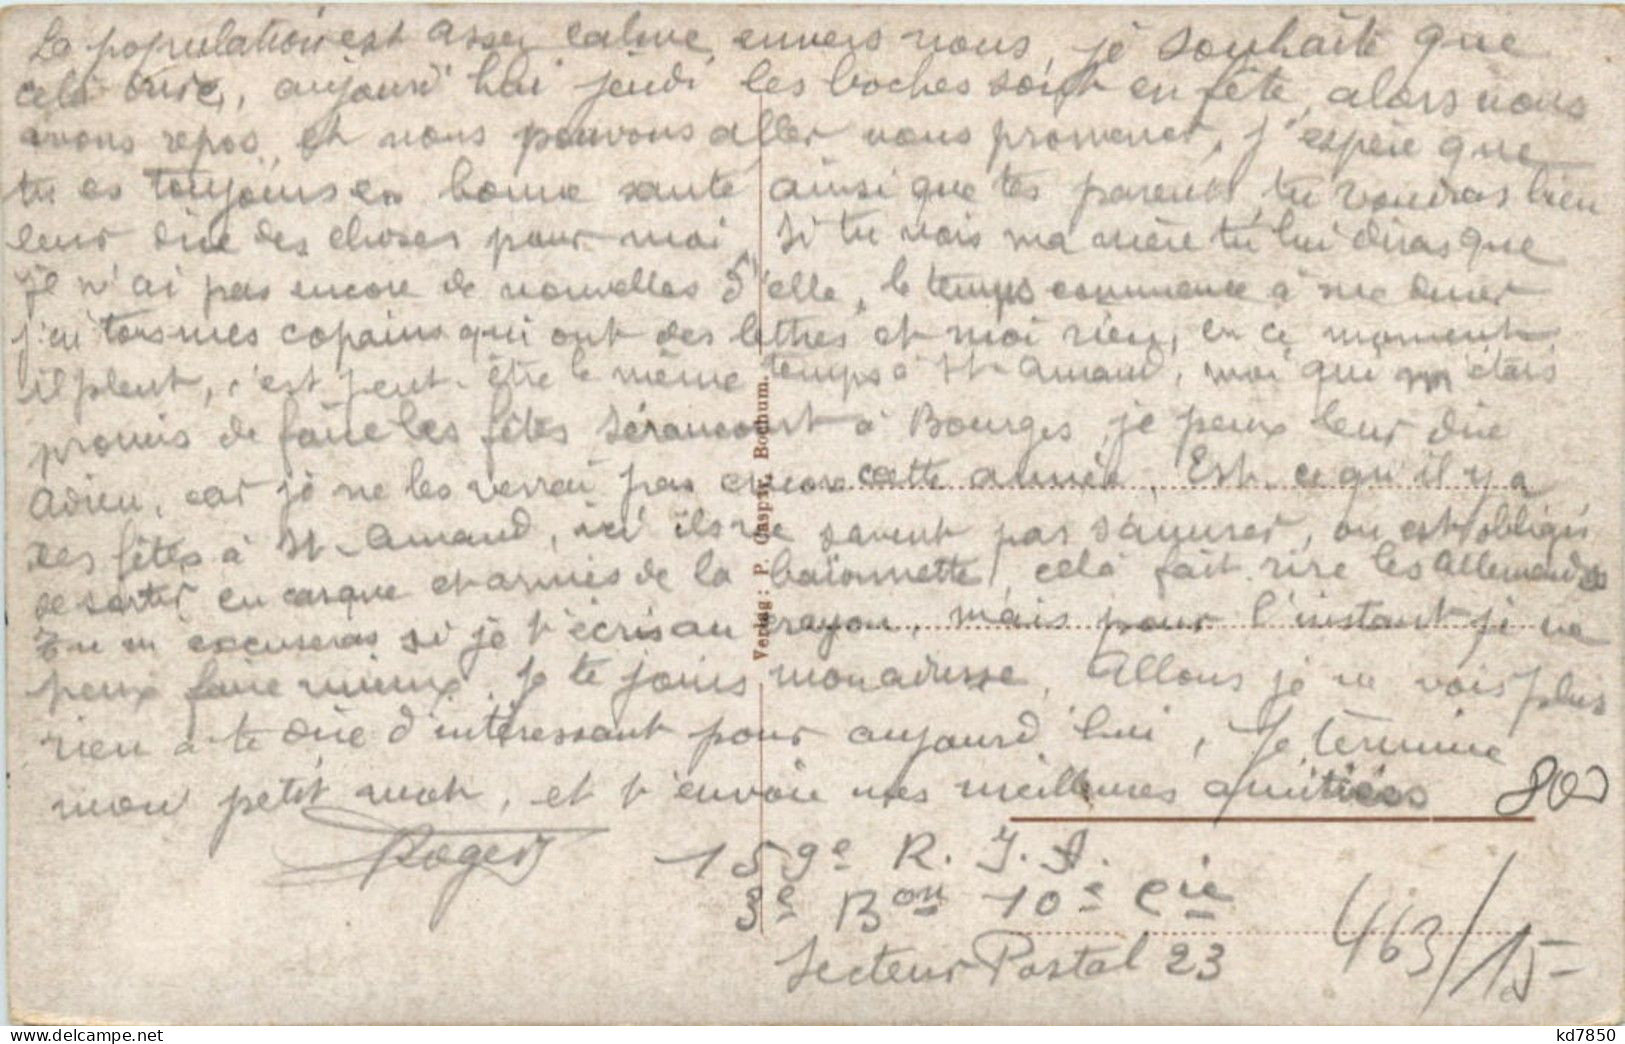 La population est assez calme envers nous, je souhaite que
cela dure, aujourd'hui jeudi les boches sont en fête, alors nous
avons repos, et nous pouvons aller nous promener, j'espère que
tu es toujours en bonne santé ainsi que tes parents, tu voudras bien
leur dire des choses pour moi, Si tu vois ma mère tu lui diras que
je n'ai pas encore de nouvelles d'elle, le temps commence à me durer
j'ai tous mes copains qui ont des lettres et moi rien, en ce moment
il pleut, c'est peut-être le même temps à St-Amand, moi qui m'étais
promis de faire les fêtes Séraucourt à Bourges, je peux leur dire
Adieu, car je ne les verrai pas encore cette année, Est-ce qu'il y a
des fêtes à St-Amand, ici ils ne savent pas s'amuser, on est obligés
de sortir en casque et armés de la baïonnette, celà fait rire les Allemands
Tu m'excuseras si je t'écris au crayon, mais pour l'instant je ne
peux faire mieux. Je te joins mon adresse, Allons je ne vois plus
rien à te dire d'intéressant pour aujourd'hui, Je termine
mon petit mot, et t'envoie mes meilleures amitiés
800
Roger
159e R. I. A.
3e Bon 10e Cie
Secteur Postal 23
463/15-
Verlag: P. Caspar, Bochum.
kd7850